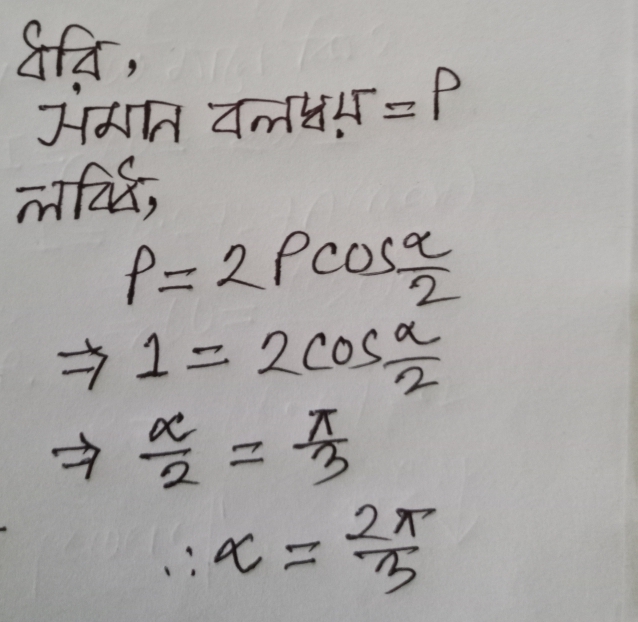 ধরি,
সমান বলদ্বয় = P
লব্ধি,
P = 2 P cos α/2
⇒ 1 = 2 cos α/2
⇒ α/2 = π/3
∴ α = 2π/3